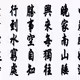 晚家南山陲
興來每獨往
勝事空自知
行到水窮處